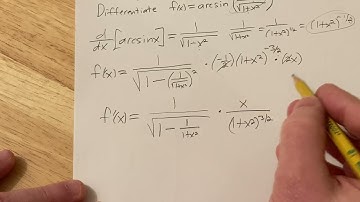 Differentiate f(x) = arcsin(1/√(1+x²))
d/dx [arcsinx] = 1/√(1-x²) 1/√(1+x²) = 1/(1+x²)^(1/2) = (1+x²)^(-1/2)
f'(x) = 1/√(1-(1/√(1+x²))²) · (-1/2)(1+x²)^(-3/2) · (2x)
f'(x) = 1/√(1 - 1/(1+x²)) · x/(1+x²)^(3/2)